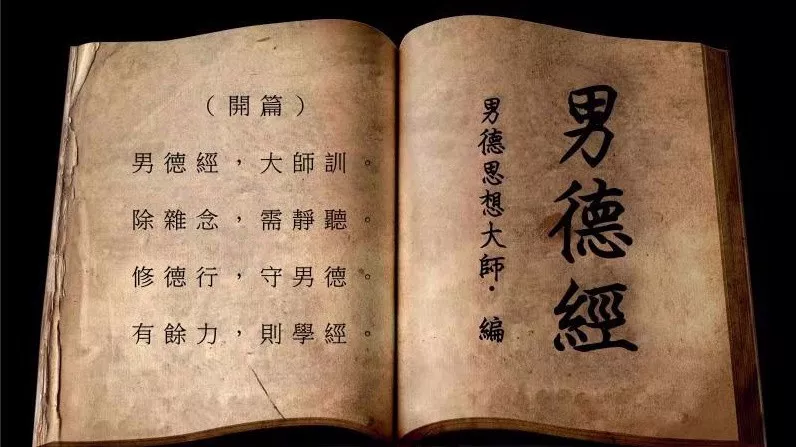 男德經
男德思想大師·編
（開篇）
男德經，大師訓。
除雜念，需靜聽。
修德行，守男德。
有餘力，則學經。